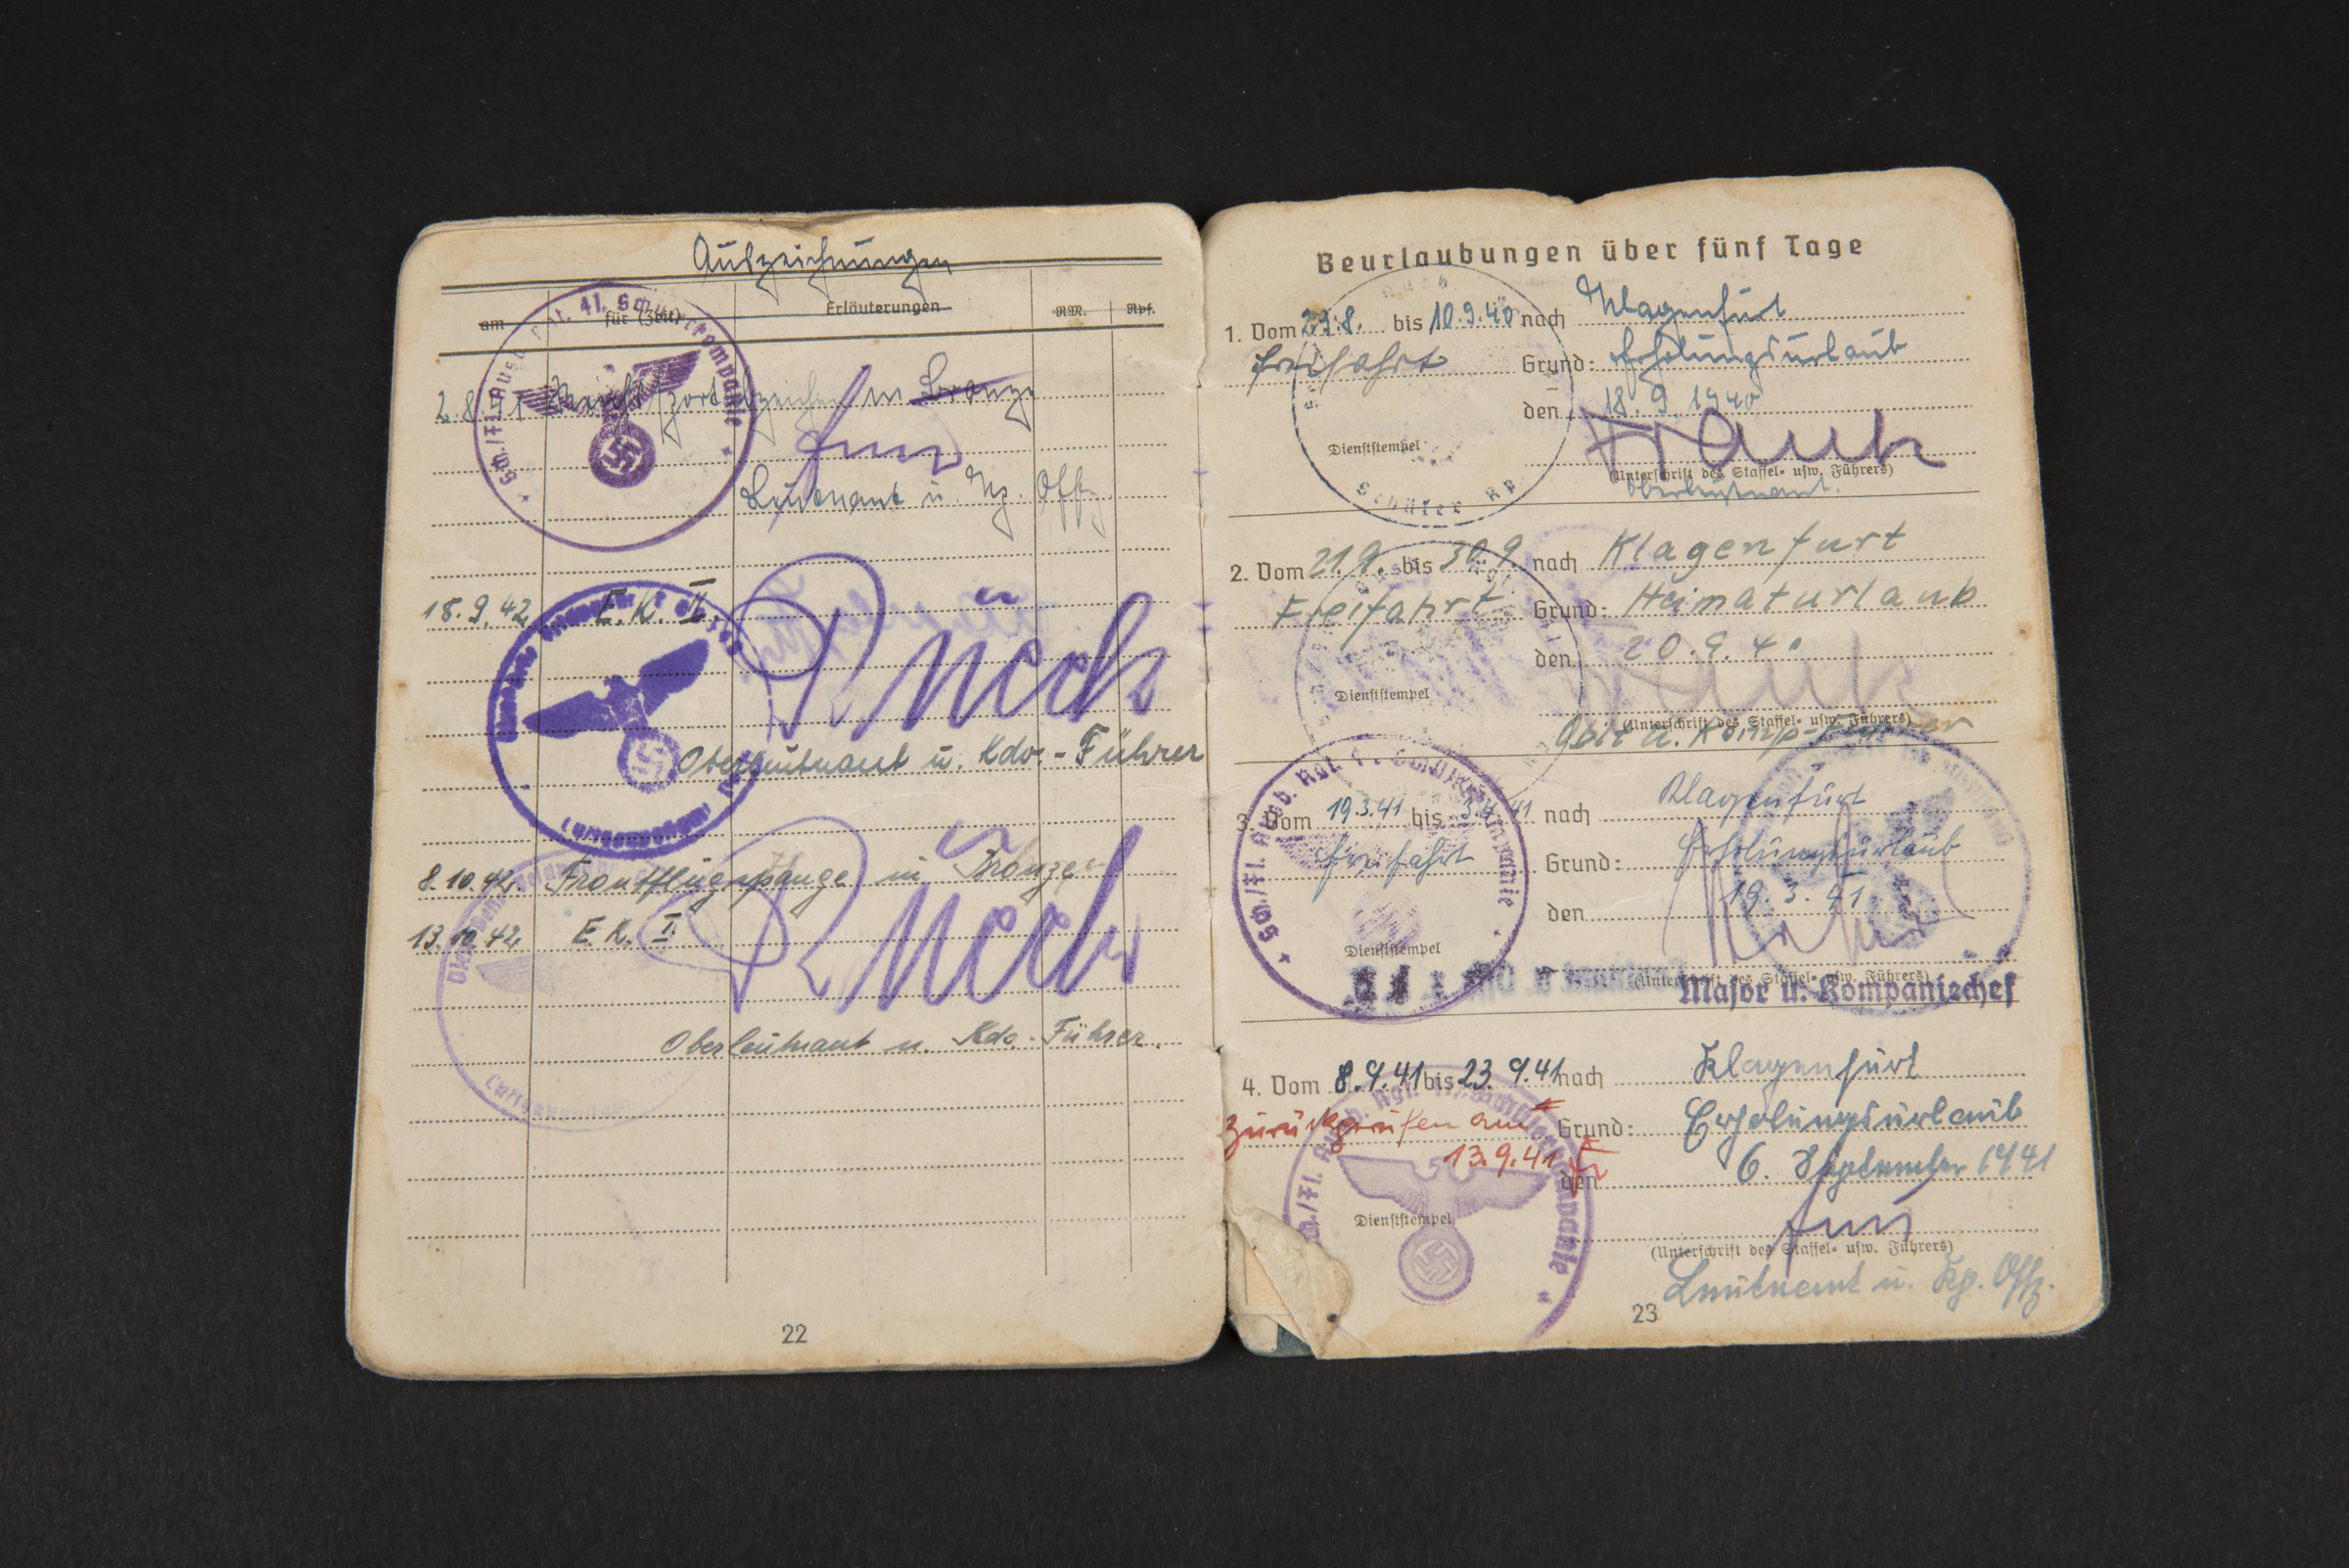 Auszeichnungen
am für (Zeit) Erläuterungen RM. Rpf.
2.8.41 Reichssportabzeichen in Bronze
Leutnant u. Kp. Offz.
18.9.42 E.K. II.
Rüch
Oberleutnant u. Kdo.-Führer
8.10.42. Frontflugspange in Bronze
13.10.42 E.K. I
Rüch
Oberleutnant u. Kdo.-Führer.
22
Beurlaubungen über fünf Tage
1. Vom 23.8. bis 10.9.40 nach Klagenfurt
Freifahrt Grund: Erholungsurlaub
den 18.9.1940
Dienststempel
(Unterschrift des Staffel- usw. Führers)
Oberleutnant.
Schüler Kp.
2. Vom 21.9. bis 30.9. nach Klagenfurt
Freifahrt Grund: Heimaturlaub
den 20.9.40
Dienststempel
(Unterschrift des Staffel- usw. Führers)
Oblt u. Komp-Führer
3. Vom 19.3.41 bis 3.4.41 nach Klagenfurt
Freifahrt Grund: Erholungsurlaub
den 19.3.41
Dienststempel
(Unterschrift des Staffel- usw. Führers)
Major u. Kompaniechef
4. Vom 8.9.41 bis 23.9.41 nach Klagenfurt
zurückgerufen am Grund: Erholungsurlaub
13.9.41 den 6. September 1941
Dienststempel
(Unterschrift des Staffel- usw. Führers)
Leutnant u. Kp. Offz.
23